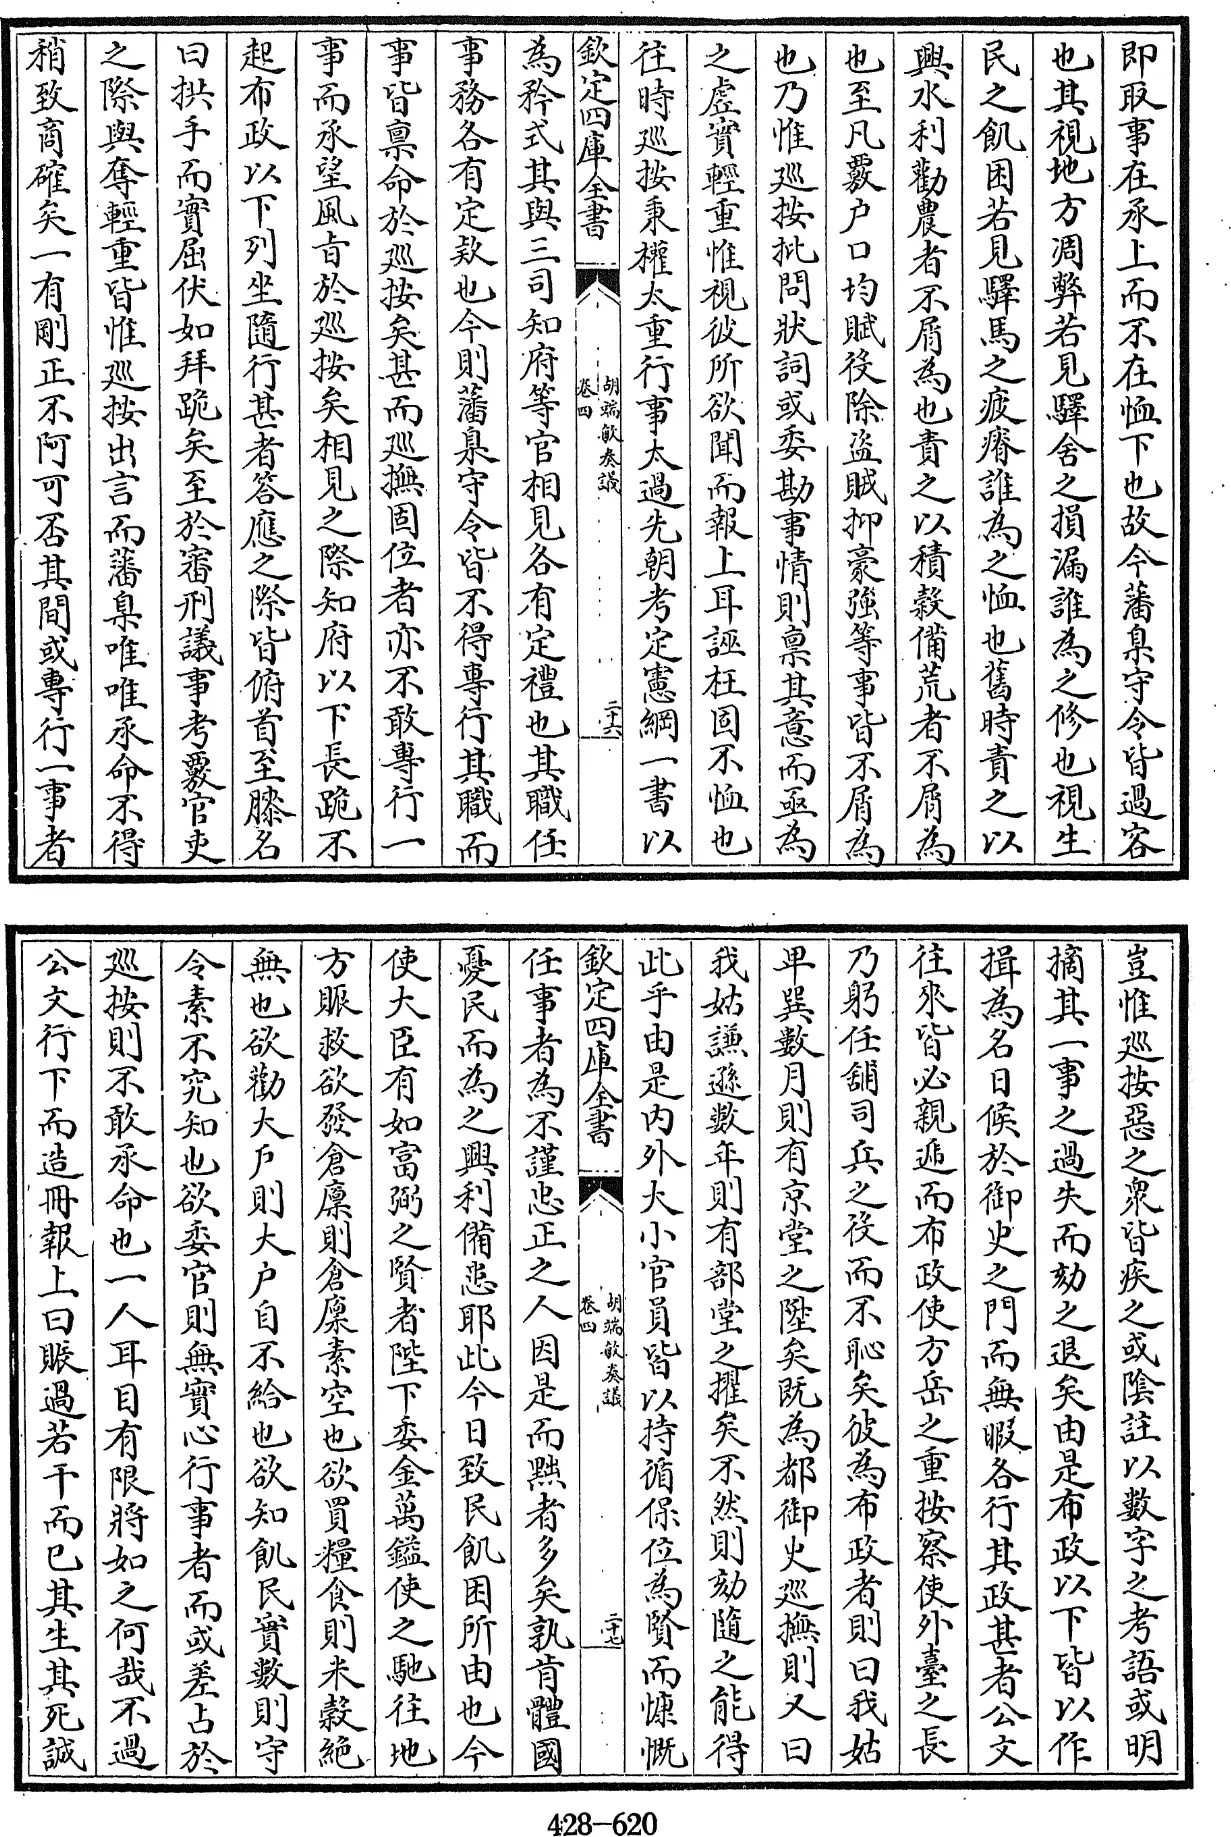 即取事在承上而不在恤下也故今藩臬守令皆過客
也其視地方凋弊若見驛舍之損漏誰為之修也視生
民之飢困若見驛馬之疲瘠誰為之恤也舊時責之以
興水利勸農者不屑為也責之以積穀備荒者不屑為
也至凡覈户口均賦役除盗賊抑豪強等事皆不屑為
也乃惟廵按批問狀詞或委勘事情則禀其意而亟為
之虚實輕重惟視彼所欲聞而報上耳誣枉固不恤也
往時廵按秉權太重行事太過先朝考定憲綱一書以
欽定四庫全書
胡端敏奏議
卷四
二十六
為矜式其與三司知府等官相見各有定禮也其職任
事務各有定款也今則藩臬守令皆不得專行其職而
事皆禀命於廵按矣甚而廵撫固位者亦不敢專行一
事而承望風㫖於廵按矣相見之際知府以下長跪不
起布政以下列坐隨行甚者答應之際皆俯首至膝名
曰拱手而實屈伏如拜跪矣至於審刑議事考覈官吏
之際與奪輕重皆惟廵按出言而藩臬唯唯承命不得
稍致商確矣一有剛正不阿可否其間或專行一事者
豈惟廵按惡之衆皆疾之或陰註以數字之考語或明
摘其一事之過失而劾之退矣由是布政以下皆以作
揖為名日候於御史之門而無暇各行其政甚者公文
往來皆必親遞而布政使方岳之重按察使外臺之長
乃躬任舖司兵之役而不恥矣彼為布政者則曰我姑
卑巽數月則有京堂之陞矣既為都御史廵撫則又曰
我姑謙遜數年則有部堂之擢矣不然則劾隨之能得
此乎由是内外大小官員皆以持循保位為賢而慷慨
欽定四庫全書
胡端敏奏議
卷四
二十七
任事者為不謹忠正之人因是而黜者多矣孰肯體國
憂民而為之興利備患耶此今日致民飢困所由也今
使大臣有如富弼之賢者陛下委金萬鎰使之馳往地
方賑救欲發倉廩則倉廩素空也欲買糧食則米穀絶
無也欲勸大户則大户自不給也欲知飢民實數則守
令素不究知也欲委官則無實心行事者而或差占於
廵按則不敢承命也一人耳目有限將如之何哉不過
公文行下而造冊報上曰賑過若干而已其生其死誠
428-620